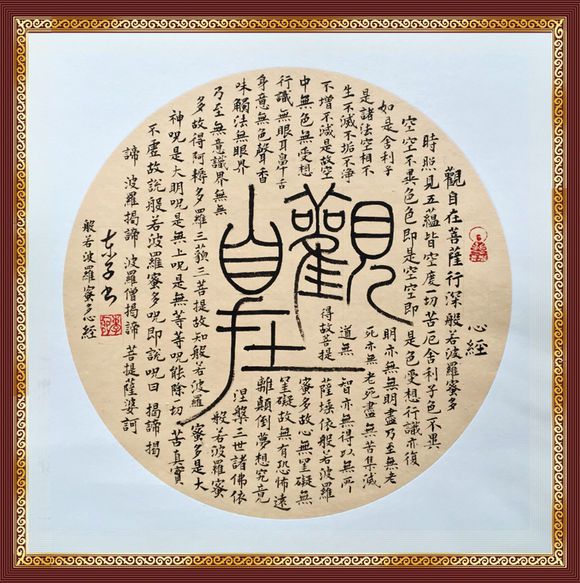 心經
觀自在菩薩行深般若波羅蜜多
時照見五蘊皆空度一切苦厄舍利子色不異
空空不異色色即是空空即是色受想行識亦復
如是舍利子
是諸法空相不
生不滅不垢不淨
不增不減是故空
中無色無受想
行識無眼耳鼻舌
身意無色聲香
味觸法無眼界
乃至無意識界無無
觀自在
明亦無無明盡乃至無老
死亦無老死盡無苦集滅
道無智亦無得以無所
得故菩提薩埵依般若波羅
蜜多故心無罣礙無
罣礙故無有恐怖遠
離顛倒夢想究竟
涅槃三世諸佛依
般若波羅蜜
多故得阿耨多羅三藐三菩提故知般若波羅蜜多是大
神呪是大明呪是無上呪是無等等呪能除一切苦真實
不虛故說般若波羅蜜多呪即說呪曰 揭諦揭
諦 波羅揭諦 波羅僧揭諦 菩提薩婆訶
般若波羅蜜多心經